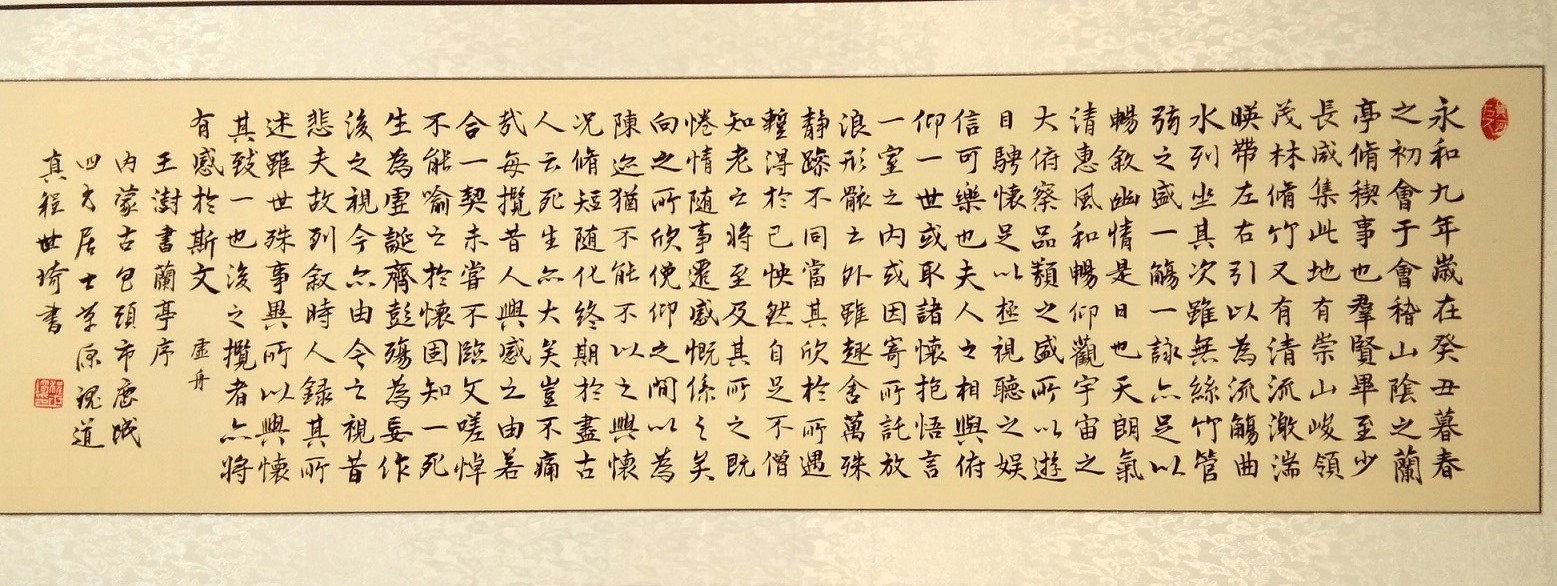 永和九年歲在癸丑暮春
之初會于會稽山陰之蘭
亭脩稧事也羣賢畢至少
長咸集此地有崇山峻領
茂林脩竹又有清流激湍
暎帶左右引以為流觴曲
水列坐其次雖無絲竹管
弦之盛一觴一詠亦足以
暢敘幽情是日也天朗氣
清惠風和暢仰觀宇宙之
大俯察品類之盛所以遊
目騁懷足以極視聽之娛
信可樂也夫人之相與俯
仰一世或取諸懷抱悟言
一室之內或因寄所託放
浪形骸之外雖趣舍萬殊
靜躁不同當其欣於所遇
蹔得於己怏然自足不僧
知老之將至及其所之既
惓情随事遷感慨係之矣
向之所欣俛仰之間以為
陳迹猶不能不以之興懷
况脩短随化終期於盡古
人云死生亦大矣豈不痛
哉每攬昔人興感之由若
合一契未嘗不臨文嗟悼
不能喻之於懷固知一死
生為虛誕齊彭殤為妄作
後之視今亦由今之視昔
悲夫故列敘時人錄其所
述雖世殊事異所以興懷
其致一也後之攬者亦將
有感於斯文 虛舟
王澍書蘭亭序
內蒙古包頭市鹿城
四方居士草原魂道
真程世琦書